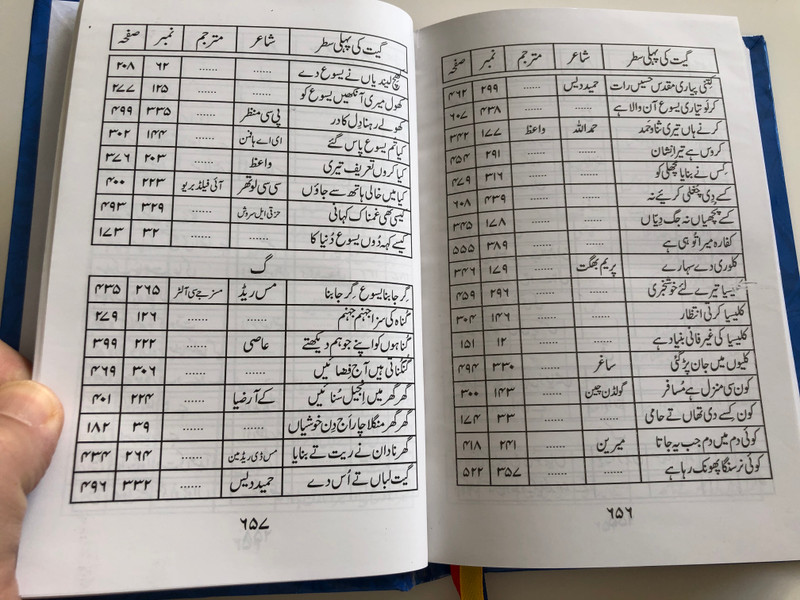 گیت کی پہلی سطر شاعر مترجم نمبر صفحہ
کِتنی پیاری مقدس حسیں رات حمید دیس ...... ۲۹۹ ۴۶۲
کرلو تیاری یسوع آن والا ہے ...... ...... ۴۳۸ ۶۰۷
کرنے ہاں تیری ثنا و حمد حمد اللہ واعظ ۱۷۷ ۳۴۲
کروس ہے تیرا نشان ...... ...... ۲۹۱ ۴۵۴
کِس نے بنایا مچھلی کو ...... ...... ۳۱۶ ۴۷۹
کسے دِی چغلی کریئے نہ ...... ...... ۴۳۹ ۶۰۸
کسے پچھیاں نہ جگ دِیّاں ...... ...... ۱۷۸ ۳۴۵
کفارہ میرا تُو ہی ہے ...... ...... ۳۸۹ ۵۵۵
کلوری دے سہارے پریم بھگت ...... ۱۷۹ ۳۴۶
کلیسیا تیرے لئے خوشخبری ...... ...... ۲۹۶ ۴۵۹
کلیسیا کرنی انتظار ...... ...... ۱۴۶ ۳۰۴
کلیسیا کی غیر فانی بنیاد ہے ...... ...... ۱۲ ۱۵۱
کلیوں میں جان پڑ گئی ساغر ...... ۳۳۰ ۴۹۴
کون سی منزل ہے مُسافر گولڈن چین ...... ۱۴۳ ۳۰۰
کون کسے دی تھاں تے حامی ...... ...... ۳۳ ۱۷۴
کوئی دم میں دم جب یہ جاتا میرین ...... ۲۴۱ ۴۱۸
کوئی نرسنگا پھونک رہا ہے ...... ...... ۳۵۷ ۵۲۲
۶۵۶
گیت کی پہلی سطر شاعر مترجم نمبر صفحہ
کھچ لیندیاں نے یسوع دے ...... ...... ۶۲ ۲۰۸
کھول میری آنکھیں یسوع کو ...... ...... ۱۲۵ ۲۷۷
کھولے رہنا دِل کا در پی سی منظر ...... ۳۳۵ ۴۹۹
کیا تم یسوع پاس گئے ای اے ہافمن ...... ۱۴۴ ۳۰۲
کیا کروں تعریف تیری واعظ ...... ۲۰۳ ۳۷۶
کیا میں خالی ہاتھ سے جاؤں سی سی لوتھر آئی فیلڈ بریو ۲۲۳ ۴۰۰
کیسی بھی غمناک کہانی حزقی ایل سروش ...... ۳۲۹ ۴۹۳
کیسے کہہ دُوں یسوع دُنیا کا ...... ...... ۳۲ ۱۷۳
گ
گِر جا بنا یسوع گِر جا بنا مس ریڈ مسز جے سی آلٹر ۲۶۵ ۴۳۵
گُناہ کی سزا جہنم جہنم ...... ...... ۱۲۶ ۲۷۹
گُناہوں کو اپنے جو ہم دیکھتے عاصی ...... ۲۲۲ ۳۹۹
گُنگناتی ہیں آج فضائیں ...... ...... ۳۰۶ ۴۶۹
گھر گھر میں اِنجیل سُنائیں کے آر ضیا ...... ۲۲۴ ۴۰۱
گھر گھر منگلا چار آج دِن خوشیاں ...... ...... ۳۹ ۱۸۲
گھر نادان نے ریت تے بنایا مس ڈی ریڈمین ...... ۲۶۴ ۴۳۴
گیت لباں تے اُس دے حمید دیس ...... ۳۳۲ ۴۹۶
۶۵۷